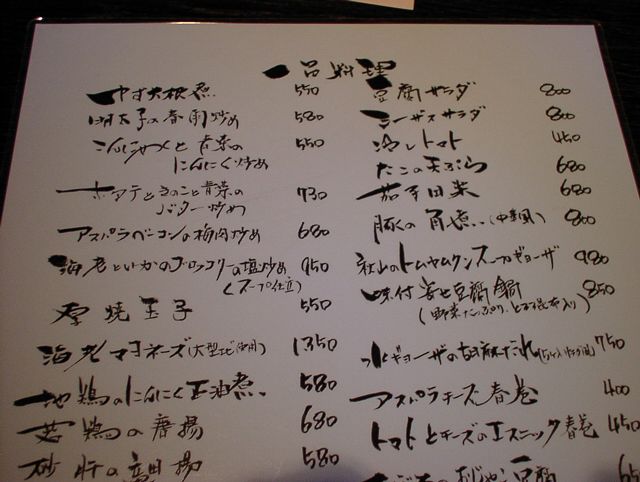 一品料理
ゆず大根煮 550
明太子の春雨炒め 580
こんにゃくと青菜の
にんにく炒め 550
ホタテときのこと青菜の
バター炒め 730
アスパラベーコンの梅肉炒め 680
海老といかのブロッコリーの塩炒め 950
(スープ仕立)
厚焼玉子 550
海老マヨネーズ(大型エビ使用) 1350
地鶏のにんにく正油煮 580
若鶏の唐揚 680
砂肝の唐揚 580
豆腐サラダ 800
シーザスサラダ 800
冷しトマト 450
たこの天ぷら 680
茄子田楽 680
豚の角煮(中華風) 800
トムヤムクンスープギョーザ 980
味付 豆腐鍋 850
(野菜たっぷり、とろろ昆布入り)
水ギョーザの胡麻だれ 750
アスパラチーズ春巻 400
トマトとチーズのエスニック春巻 450
豆腐